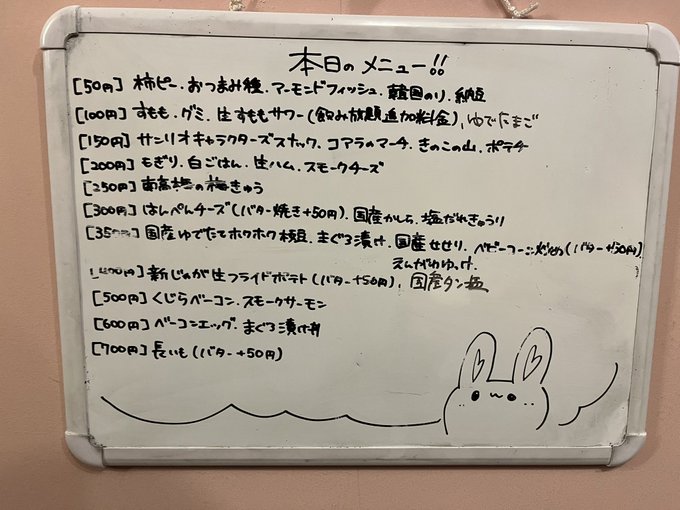 本日のメニュー!!
[50円] 柿ピー.おつまみ種.アーモンドフィッシュ.韓国のり.納豆
[100円] すもも.グミ.生すももサワー(飲み放題追加料金).ゆでたまご
[150円] サンリオキャラクターズスナック.コアラのマーチ.きのこの山.ポテチ
[200円] もぎり.白ごはん.生ハム.スモークチーズ
[250円] 南高梅の梅きゅう
[300円] はんぺんチーズ(バター焼き+50円).国産かしら.塩だれきゅうり
[350円] 国産ゆでたてホクホク枝豆.まぐろ漬け.国産せせり.ベビーコーン炒め(バター+50円)
えんがわゆっけ.
[400円] 新じゃが生フライドポテト(バター+50円).国産タン塩
[500円] くじらベーコン.スモークサーモン
[600円] ベーコンエッグ.まぐろ漬け丼
[700円] 長いも(バター+50円)